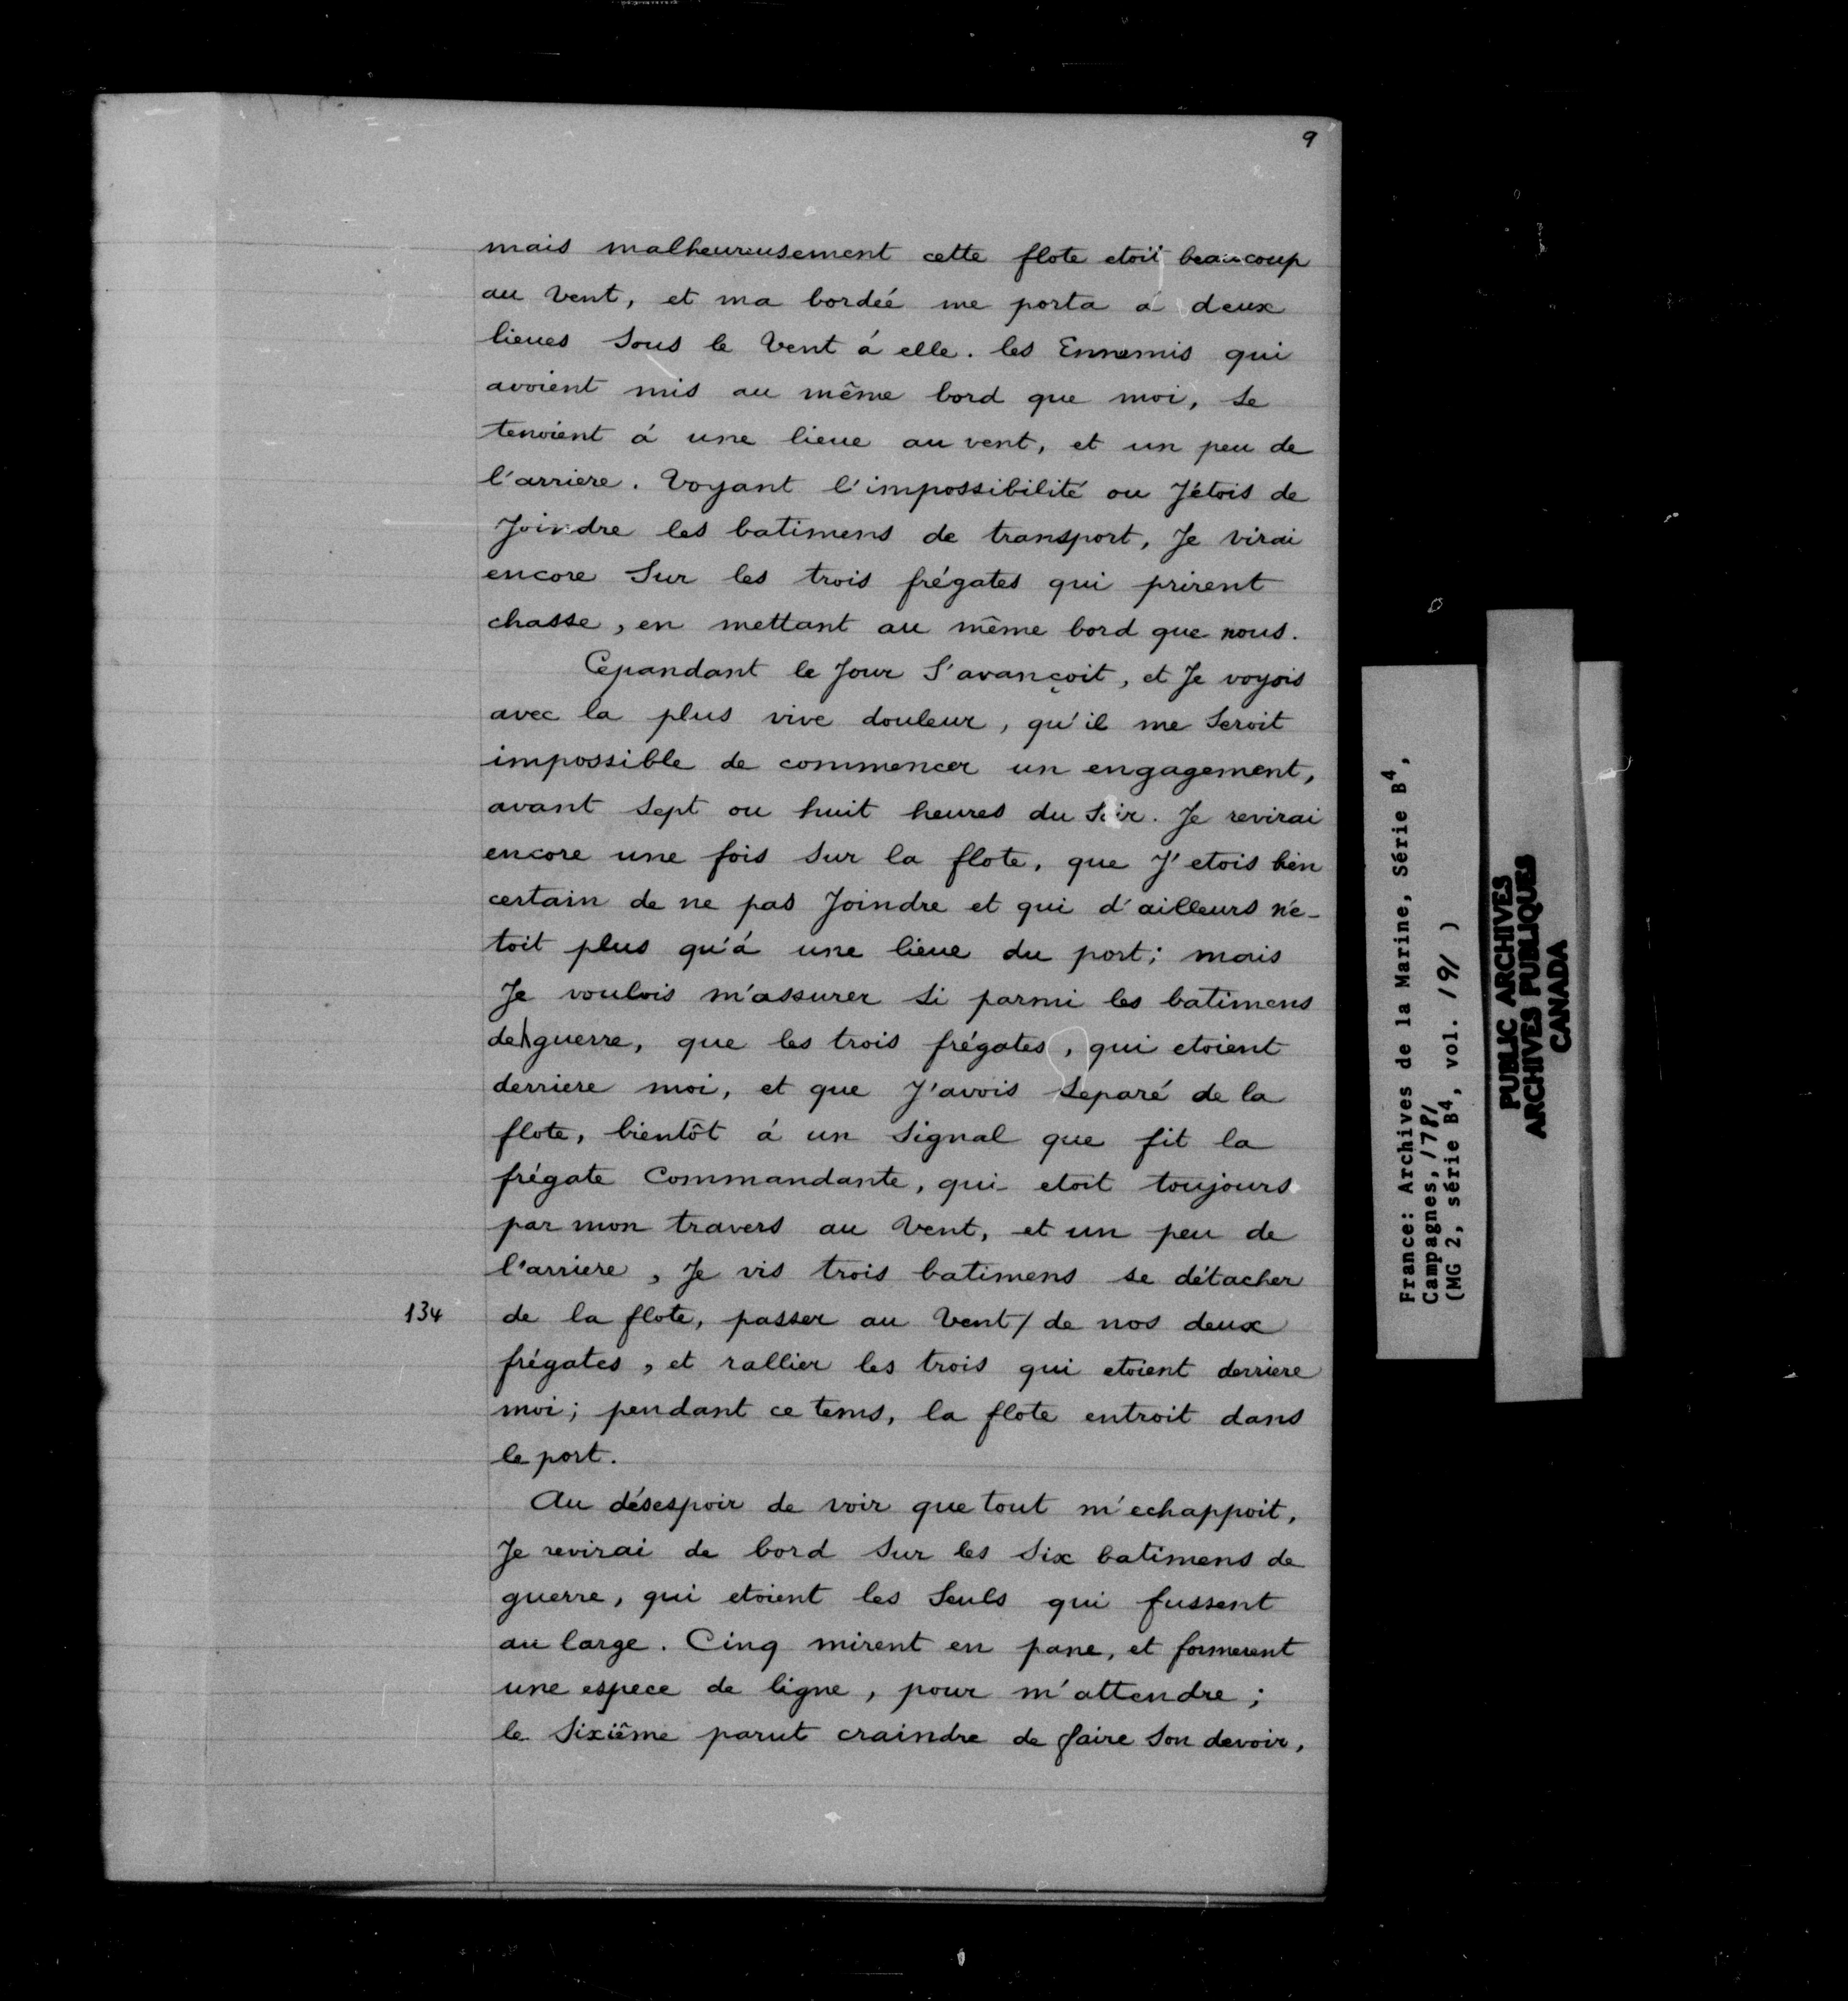 9
mais malheureusement cette flote etoit beaucoup
au Vent, et ma bordeé me porta á deux
lieues Sous le Vent á elle. les Ennemis qui
avoient mis au même bord que moi, se
tenoient á une lieue au vent, et un peu de
l'arriere. Voyant l'impossibilité ou J'étois de
Joindre les batimens de transport, Je virai
encore Sur les trois frégates qui prirent
chasse, en mettant au même bord que nous.
Cepandant le Jour S'avançoit, et Je voyois
avec la plus vive douleur, qu'il me Seroit
impossible de commencer un engagement,
avant Sept ou huit heures du Soir. Je revirai
encore une fois Sur la flote, que J'etois bien
certain de ne pas Joindre et qui d'ailleurs n'é-
toit plus qu'á une lieue du port; mais
Je voulois m'assurer Si parmi les batimens
de guerre, que les trois frégates, qui etoient
derriere moi, et que J'avois Separé de la
flote, bientôt á un Signal que fit la
frégate Commandante, qui etoit toujours
par mon travers au Vent, et un peu de
l'arriere, Je vis trois batimens se détacher
134 de la flote, passer au Vent / de nos deux
frégates, et rallier les trois qui etoient derriere
moi; pendant ce tems, la flote entroit dans
le port.
Au désespoir de voir que tout m'echappoit,
Je revirai de bord Sur les Six batimens de
guerre, qui etoient les Seuls qui fussent
au large. Cinq mirent en pane, et formerent
une espece de ligne, pour m'attendre;
le Sixiême parut craindre de faire Son devoir,
France: Archives de la Marine, Série B4,
Campagnes, 1781
(MG 2, série B4, vol. 191 )
PUBLIC ARCHIVES
ARCHIVES PUBLIQUES
CANADA